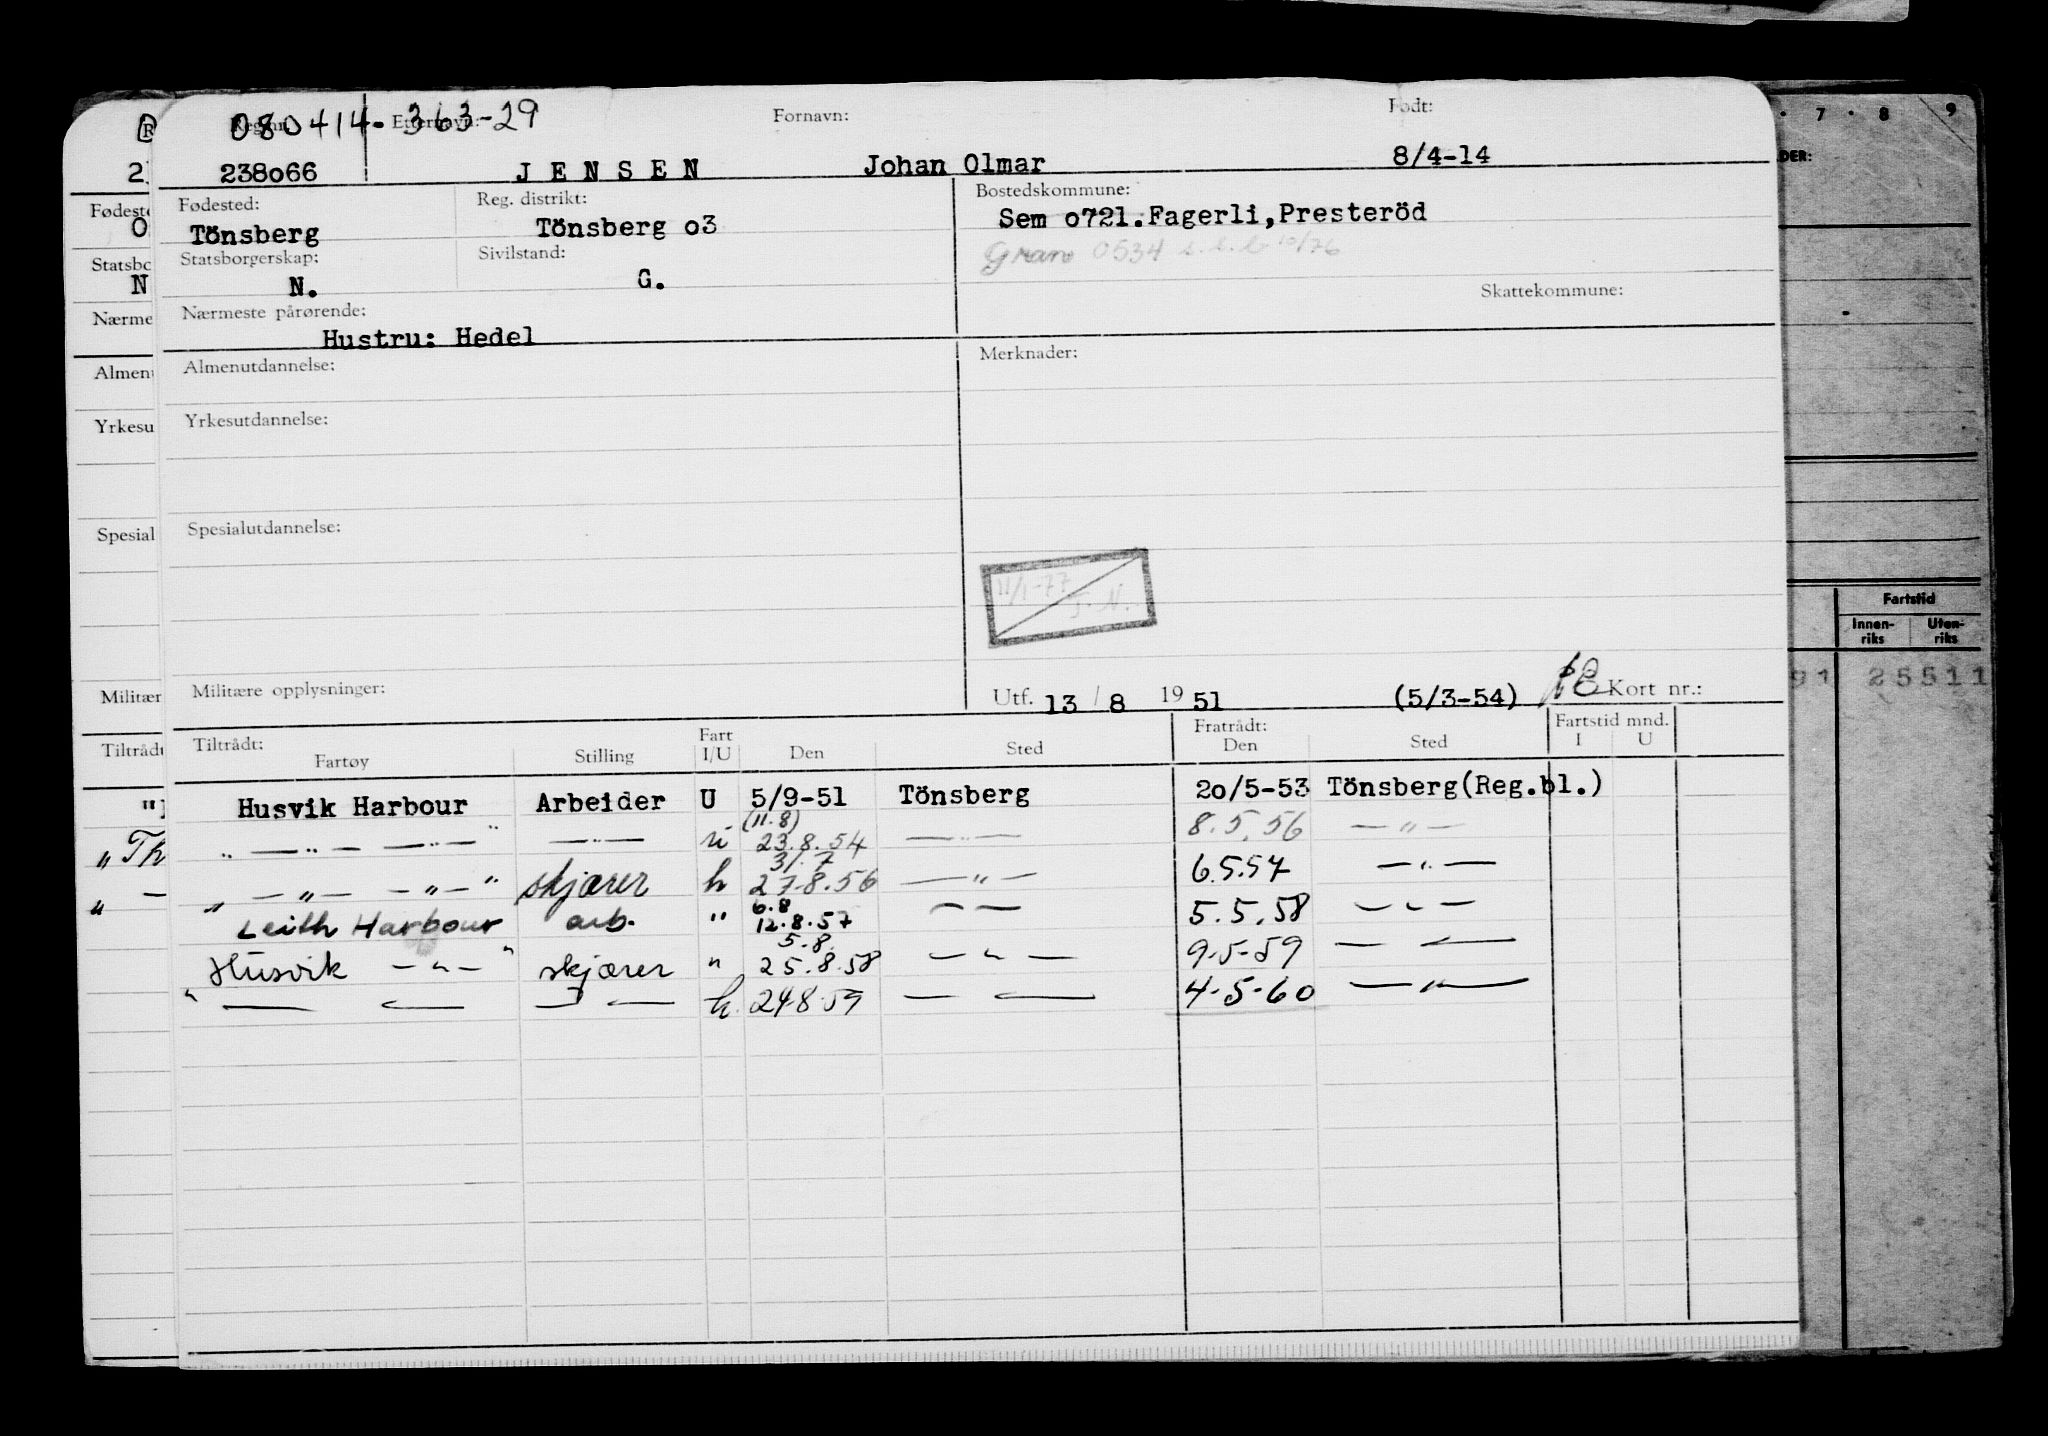 080414-363-29
Reg.nr. Etternavn: Fornavn: Født:
238o66 J E N S E N Johan Olmar 8/4-14
Fødested: Reg. distrikt: Bostedskommune:
Tönsberg Tönsberg o3 Sem o721.Fagerli,Presteröd
Statsborgerskap: Sivilstand: Gran 0534 10/76
N. G.
Skattekommune:
Nærmeste pårørende:
Hustru: Hedel
Almenutdannelse: Merknader:
Yrkesutdannelse:
Spesialutdannelse:
11/1-77
J. N.
Militære opplysninger: Utf. 13 / 8 19 51 (5/3-54) Kort nr.:
Tiltrådt: Fratrådt: Fartstid mnd.
Fartøy Stilling Fart I/U Den Sted Den Sted I U
Husvik Harbour Arbeider U 5/9-51 Tönsberg 2o/5-53 Tönsberg(Reg.bl.)
(11.8)
" — " — — " — " — " — u 23.8.54 — " — 8.5.56 — " —
31.7
" — " — — " — " skjærer u 27.8.56 — " — 6.5.57 — " —
6.8
Leith Harbour arb. " 12.8.57 — " — 5.5.58 — " —
5.8.
Husvik — " — " skjærer " 25.8.58 — " — 9.5-59 — " —
" — " — — " — u. 24.8.59 — " — 4-5-60 — " —
R
2
Fødeste
O
Statsbo
N
Nærme
Almen
Yrkesu
Spesial
Militær
Tiltrådt
"Th
7 . 8 . 9
DER:
Fartstid
Innen-riks Uten-riks
91 25511